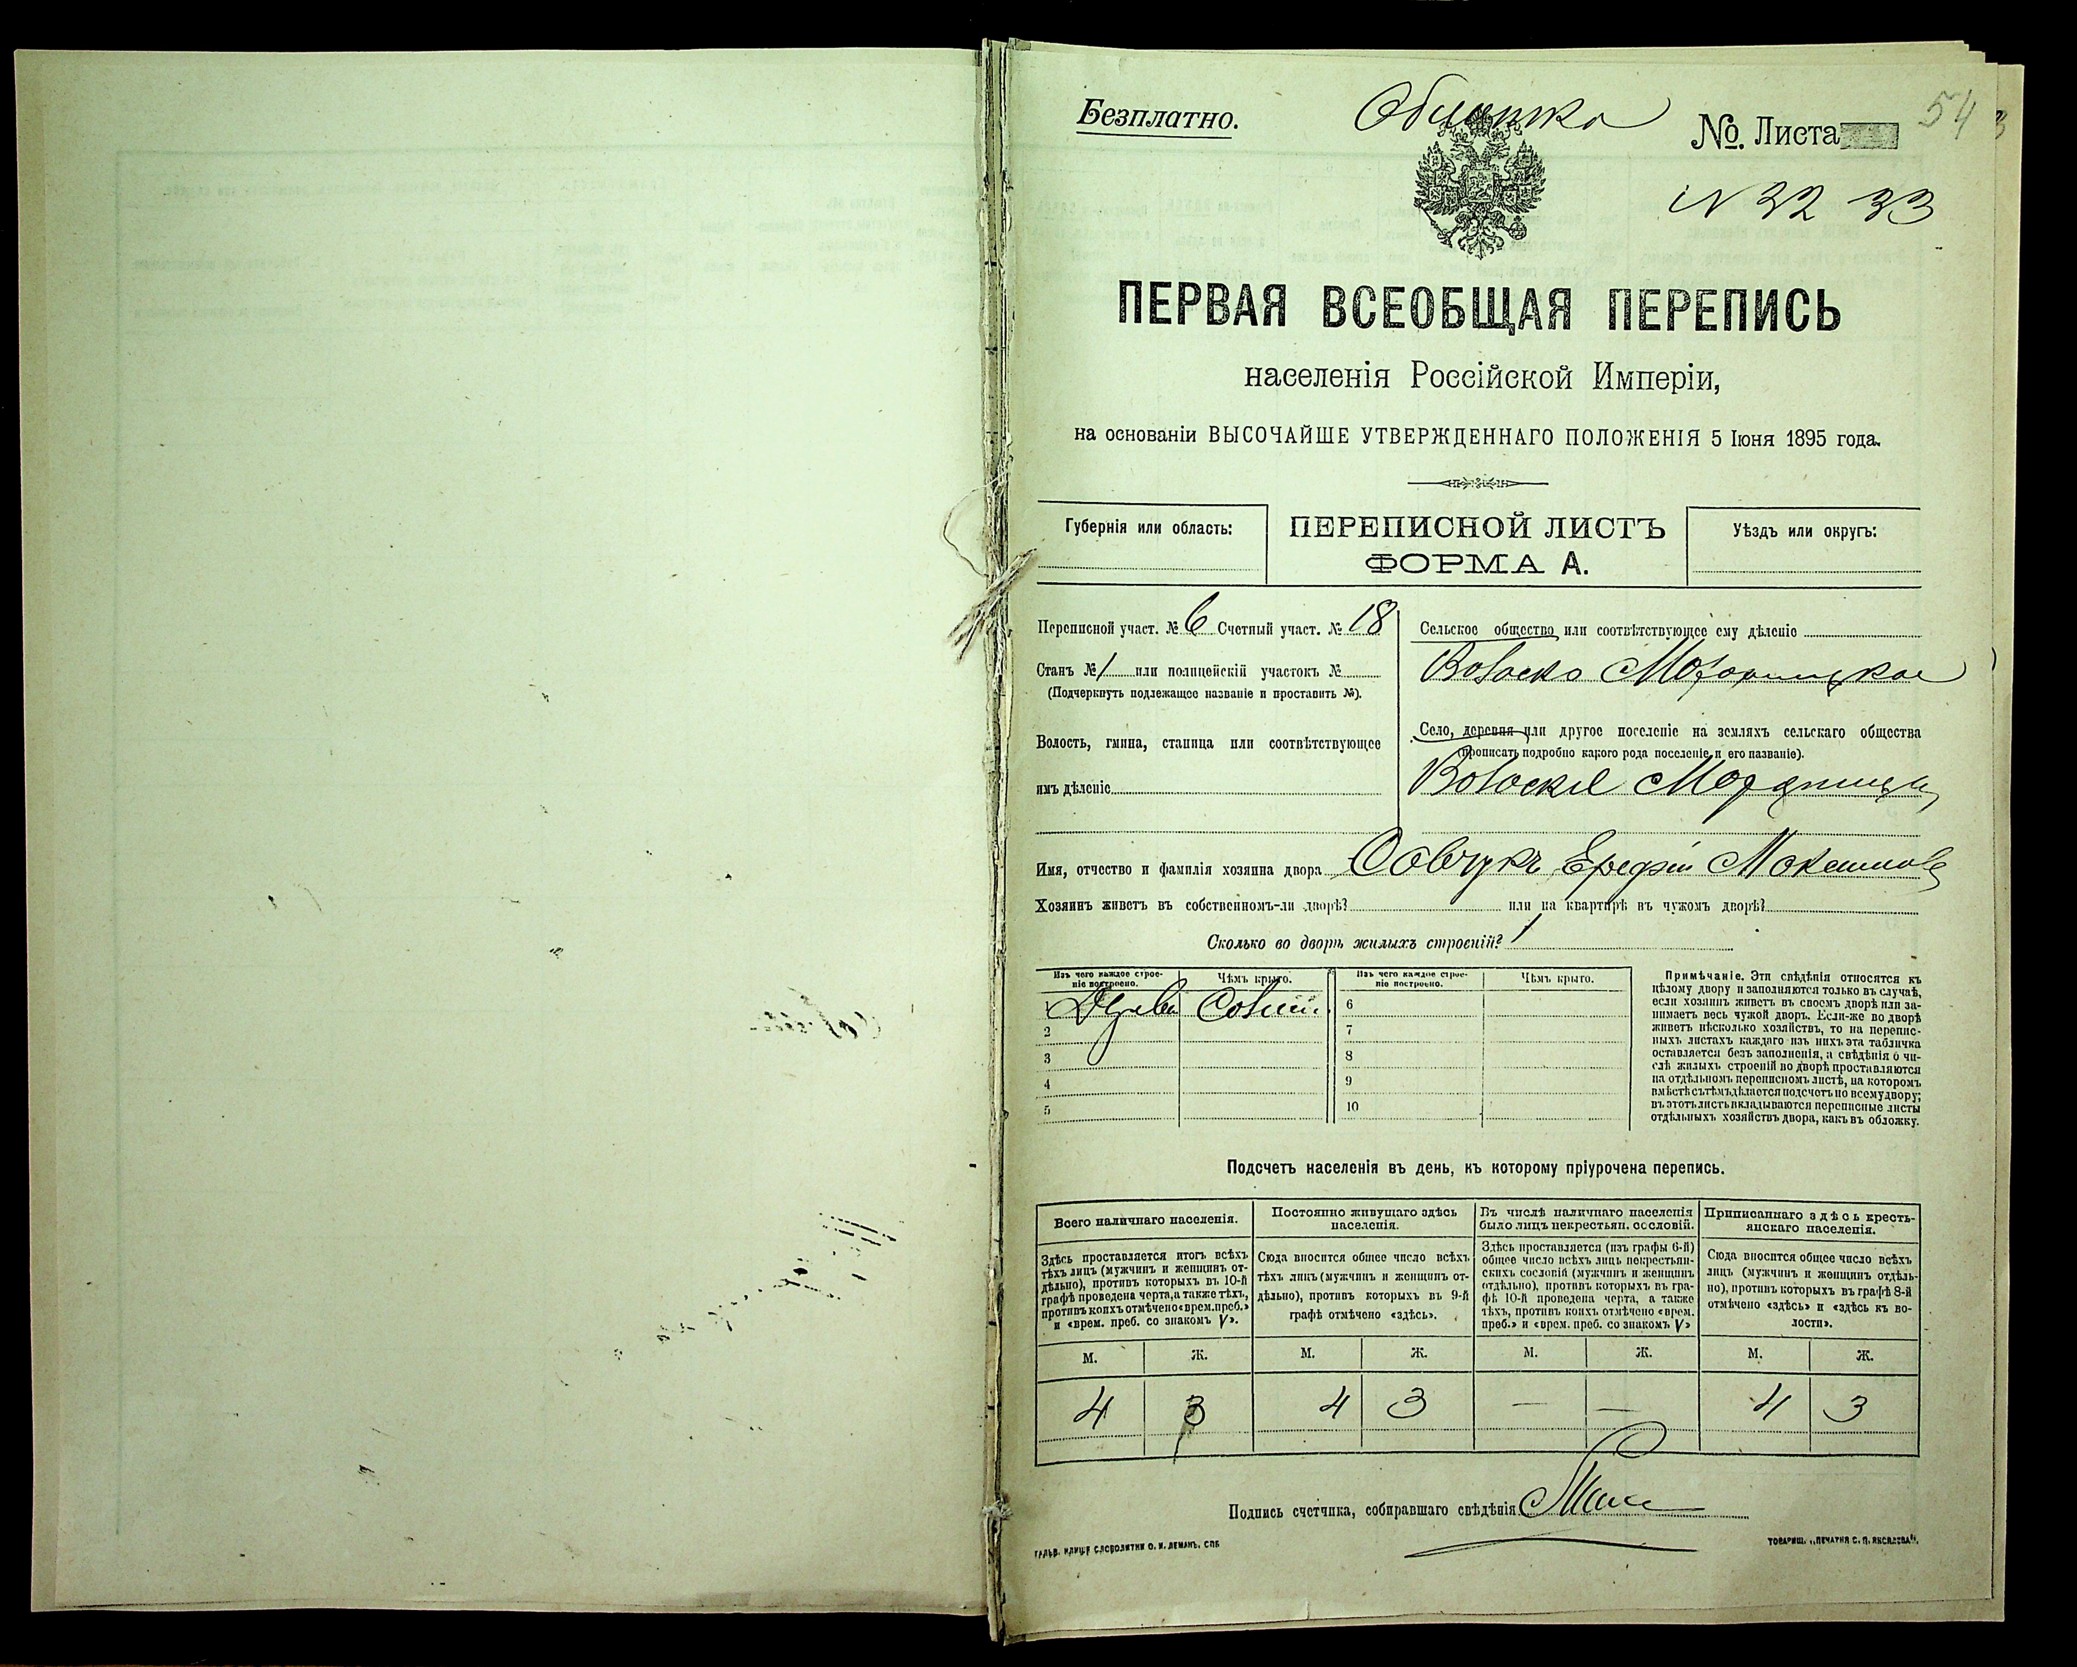 Безплатно.
Обложка
54
№. Листа
N 32 33
ПЕРВАЯ ВСЕОБЩАЯ ПЕРЕПИСЬ
населенія Россійской Имперіи,
на основаніи ВЫСОЧАЙШЕ УТВЕРЖДЕННАГО ПОЛОЖЕНІЯ 5 Іюня 1895 года.
Губернія или область:
ПЕРЕПИСНОЙ ЛИСТЪ
ФОРМА А.
Уѣздъ или округъ:
Переписной участ. № 6 Счетный участ. № 18
Станъ № 1 или полицейскій участокъ №
(Подчеркнуть подлежащее названіе и проставить №).
Волость, гмина, станица или соотвѣтствующее
имъ дѣленіе
Сельское общество или соотвѣтствующее ему дѣленіе
Село, деревня или другое поселеніе на земляхъ сельскаго общества
(прописать подробно какого рода поселеніе и его названіе).
Имя, отчество и фамилія хозяина двора
Хозяинъ живетъ въ собственномъ-ли дворѣ? или на квартирѣ въ чужомъ дворѣ?
Сколько во дворѣ жилыхъ строеній? 1
Изъ чего каждое строе-
ніе построено.
Чѣмъ крыто.
Изъ чего каждое строе-
ніе построено.
Чѣмъ крыто.
1
2
3
4
5
6
7
8
9
10
Примѣчаніе. Эти свѣдѣнія относятся къ
цѣлому двору и заполняются только въ случаѣ,
если хозяинъ живетъ въ своемъ дворѣ или за-
нимаетъ весь чужой дворъ. Если-же во дворѣ
живетъ нѣсколько хозяйствъ, то на перепис-
ныхъ листахъ каждаго изъ нихъ эта табличка
оставляется безъ заполненія, а свѣдѣнія о чи-
слѣ жилыхъ строеній во дворѣ проставляются
на отдѣльномъ переписномъ листѣ, на которомъ
вмѣстѣ съ тѣмъ дѣлается подсчетъ по всему двору;
въ этотъ листъ вкладываются переписные листы
отдѣльныхъ хозяйствъ двора, какъ въ обложку.
Подсчетъ населенія въ день, къ которому пріурочена перепись.
Всего наличнаго населенія.
Постоянно живущаго здѣсь
населенія.
Въ числѣ наличнаго населенія
было лицъ некрестьян. сословій.
Приписаннаго здѣсь кресть-
янскаго населенія.
Здѣсь проставляется итогъ всѣхъ
тѣхъ лицъ (мужчинъ и женщинъ от-
дѣльно), противъ которыхъ въ 10-й
графѣ проведена черта, а также тѣхъ,
противъ коихъ отмѣчено «врем. преб.»
и «врем. преб. со знакомъ V».
Сюда вносится общее число всѣхъ
тѣхъ лицъ (мужчинъ и женщинъ от-
дѣльно), противъ которыхъ въ 9-й
графѣ отмѣчено «здѣсь».
Здѣсь проставляется (изъ графы 6-й)
общее число всѣхъ лицъ некрестьян-
скихъ сословій (мужчинъ и женщинъ
отдѣльно), противъ которыхъ въ гра-
фѣ 10-й проведена черта, а также
тѣхъ, противъ коихъ отмѣчено «врем.
преб.» и «врем. преб. со знакомъ V»
Сюда вносится общее число всѣхъ
лицъ (мужчинъ и женщинъ отдѣль-
но), противъ которыхъ въ графѣ 8-й
отмѣчено «здѣсь» и «здѣсь къ во-
лости».
М. Ж. М. Ж. М. Ж. М. Ж.
4 3 4 3 — — 4 3
Подпись счетчика, собиравшаго свѣдѣнія
СЛОВОЛИТНИ О. И. ЛЕМАНЪ, СПБ
ТОВАРИЩ. „ПЕЧАТНЯ С. П. ЯКОВЛЕВА“.